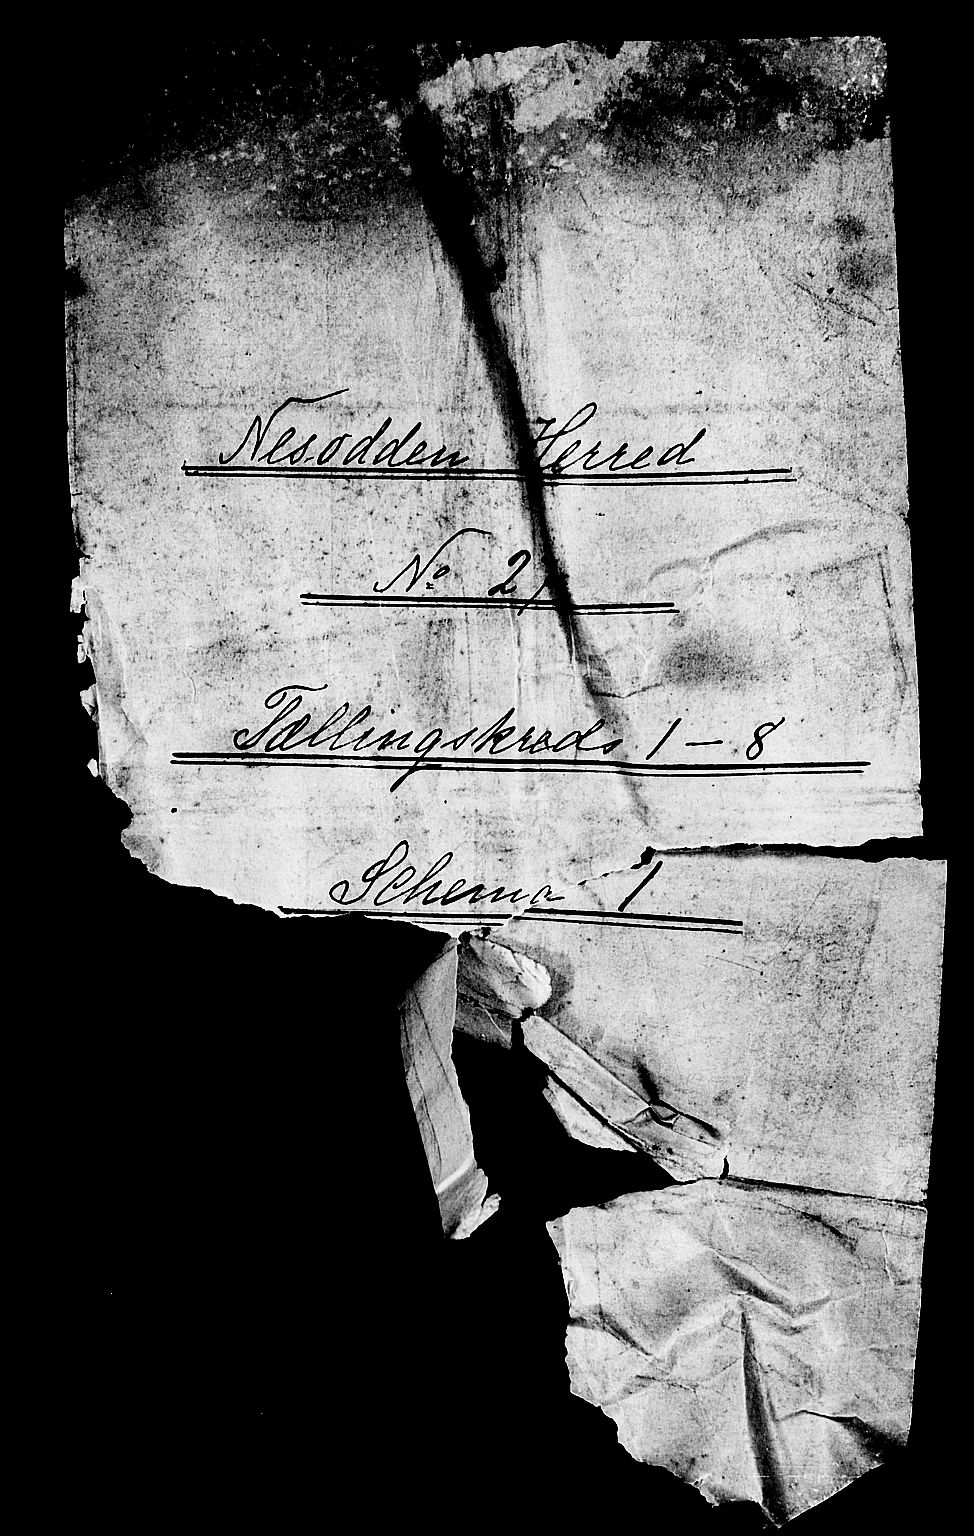 Nesodden Herred
No 2
Tællingskreds 1 – 8
Schema 1